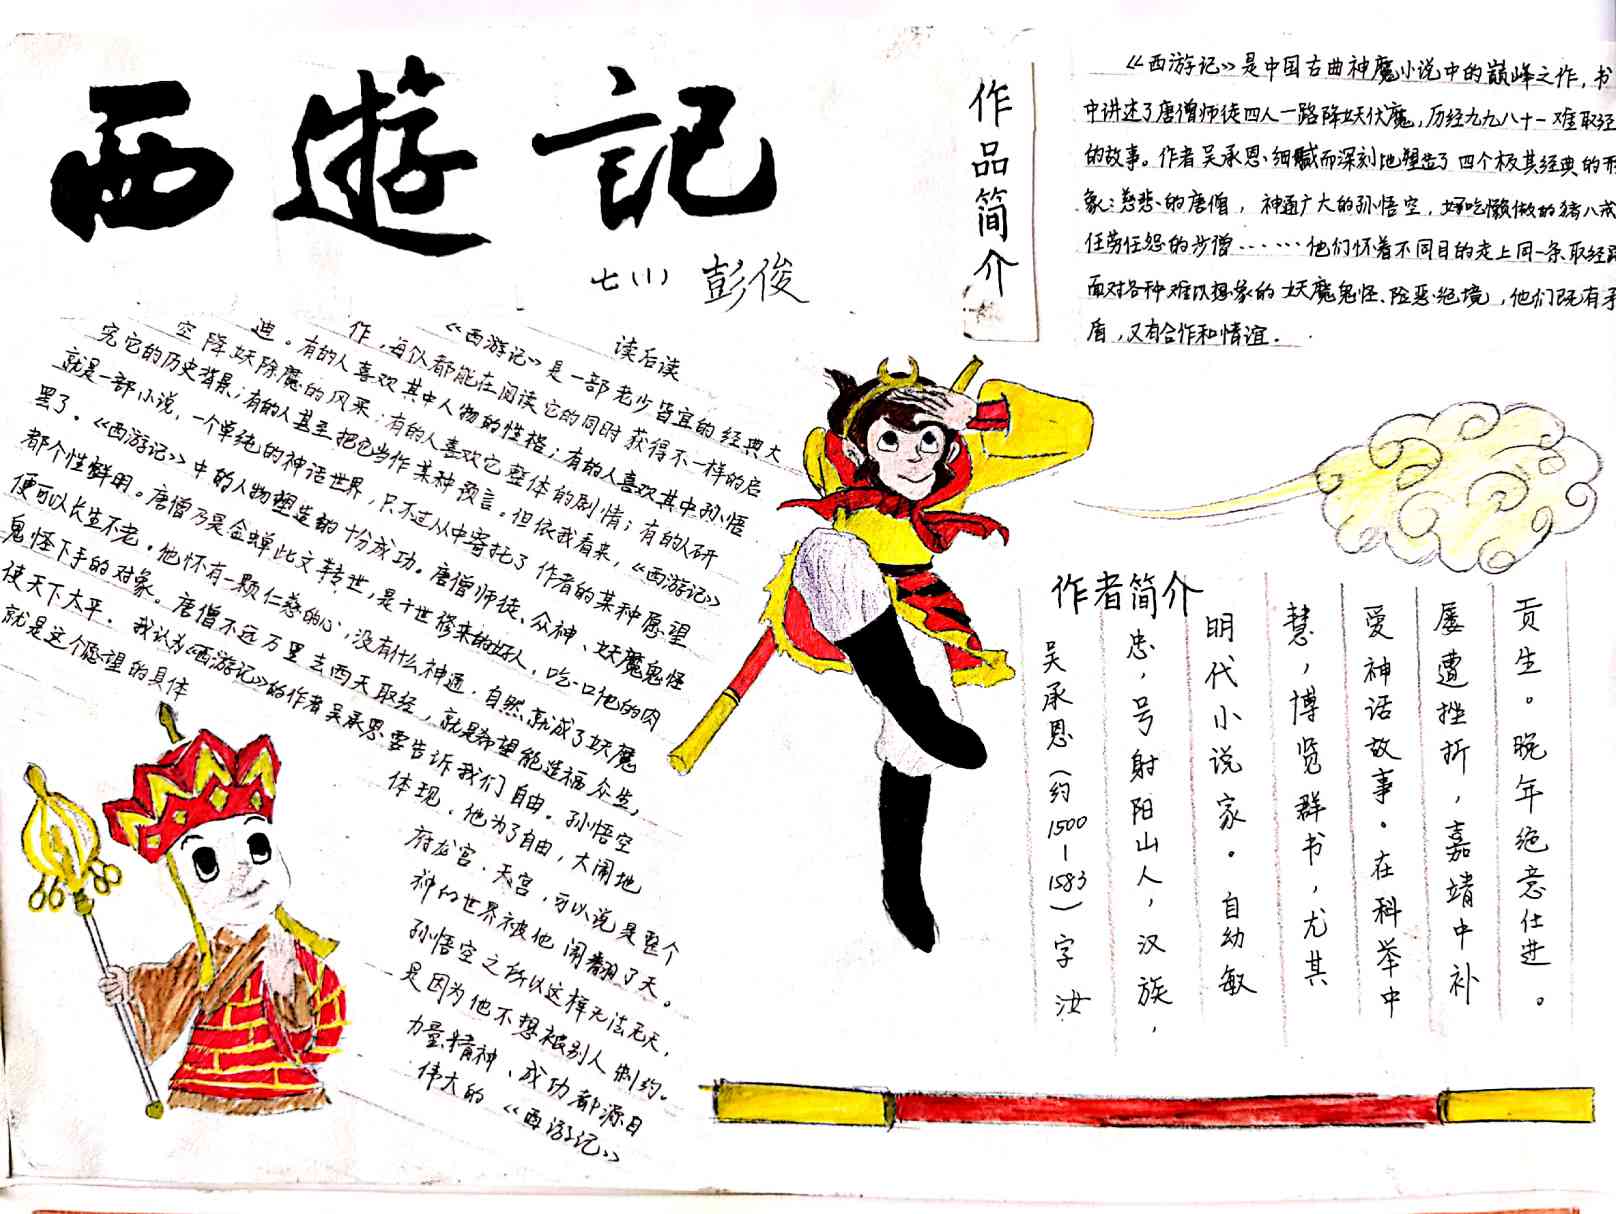 西遊記
七(1) 彭俊
作品简介
《西游记》是中国古典神魔小说中的巅峰之作,书
中讲述了唐僧师徒四人一路降妖伏魔,历经九九八十一难取经
的故事。作者吴承恩细腻而深刻地塑造了四个极其经典的形
象:慈悲的唐僧,神通广大的孙悟空,好吃懒做的猪八戒
任劳任怨的沙僧……他们怀着不同目的走上同一条取经路
面对各种难以想象的妖魔鬼怪、险恶绝境,他们既有矛
盾,又有合作和情谊。
读后读
《西游记》是一部老少皆宜的经典大
作,每个人都能在阅读它的同时获得不一样的启
迪。有的人喜欢其中人物的性格;有的人喜欢其中孙悟
空降妖除魔的风采;有的人喜欢它整体的剧情;有的人研
究它的历史背景;有的人甚至把它当作某种预言。但依我看来,《西游记》
就是一部小说,一个单纯的神话世界,只不过从中寄托了作者的某种愿望
罢了。《西游记》中的人物塑造的十份成功。唐僧师徒、众神、妖魔鬼怪
都个性鲜明。唐僧乃是金蝉此文转世,是十世修来的好人,吃一口他的肉
便可以长生不老。他怀有一颗仁慈的心,没有什么神通,自然就成了妖魔
鬼怪下手的对象。唐僧不远万里去西天取经,就是希望能造福众生,
使天下太平。我认为《西游记》的作者吴承恩要告诉我们自由。孙悟空
就是这个愿望的具体
体现、他为了自由,大闹地
府龙宫、天宫,可以说是整个
神的世界被他闹翻了天。
孙悟空之所以这样无法无天,
是因为他不想被别人制约。
力量、精神、成功都源自
伟大的《西游记》
作者简介
吴承恩(约1500—1583)字汝
忠,号射阳山人,汉族,
明代小说家。自幼敏
慧,博览群书,尤其
爱神话故事。在科举中
屡遭挫折,嘉靖中补
贡生。晚年绝意仕进。